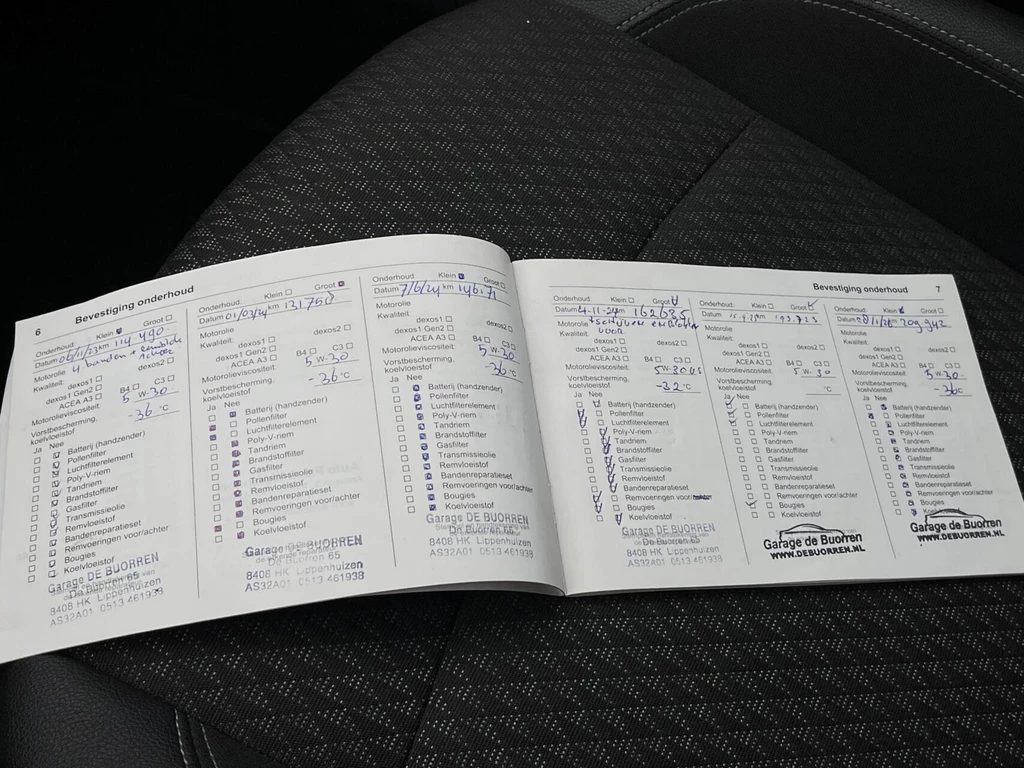 6 Bevestiging onderhoud
Onderhoud: Klein Groot
Datum 06/11/23 km 114 490
Motorolie 4 banden +
Kwaliteit: dexos1 dexos2
dexos1 Gen2
ACEA A3 B4 C3
Motorolieviscositeit: 5 W-30
Vorstbescherming, koelvloeistof -36 °C
Ja Nee
Batterij (handzender)
Pollenfilter
Luchtfilterelement
Poly-V-riem
Tandriem
Brandstoffilter
Gasfilter
Transmissieolie
Remvloeistof
Bandenreparatieset
Remvoeringen voor/achter
Bougies
Koelvloeistof
Garage DE BUORREN
De Buorren 65
8408 HK Lippenhuizen
AS32A01 0513 461938
Onderhoud: Klein Groot
Datum 01/03/24 km 131750
Motorolie
Kwaliteit: dexos1 dexos2
dexos1 Gen2
ACEA A3 B4 C3
Motorolieviscositeit: 5 W-30
Vorstbescherming, koelvloeistof -36 °C
Ja Nee
Batterij (handzender)
Pollenfilter
Luchtfilterelement
Poly-V-riem
Tandriem
Brandstoffilter
Gasfilter
Transmissieolie
Remvloeistof
Bandenreparatieset
Remvoeringen voor/achter
Bougies
Koelvloeistof
Garage DE BUORREN
De Buorren 65
8408 HK Lippenhuizen
AS32A01 0513 461938
Onderhoud: Klein Groot
Datum 7/6/24 km
Motorolie
Kwaliteit: dexos1 dexos2
dexos1 Gen2
ACEA A3 B4 C3
Motorolieviscositeit: 5 W-30
Vorstbescherming, koelvloeistof -36 °C
Ja Nee
Batterij (handzender)
Pollenfilter
Luchtfilterelement
Poly-V-riem
Tandriem
Brandstoffilter
Gasfilter
Transmissieolie
Remvloeistof
Bandenreparatieset
Remvoeringen voor/achter
Bougies
Koelvloeistof
Garage DE BUORREN
De Buorren 65
8408 HK Lippenhuizen
AS32A01 0513 461938
Bevestiging onderhoud 7
Onderhoud: Klein Groot
Datum 4-11-24 km 162635
Motorolie + schijven
Kwaliteit: voor
dexos1 dexos2
dexos1 Gen2
ACEA A3 B4 C3
Motorolieviscositeit:
Vorstbescherming, koelvloeistof -32 °C
Ja Nee
Batterij (handzender)
Pollenfilter
Luchtfilterelement
Poly-V-riem
Tandriem
Brandstoffilter
Gasfilter
Transmissieolie
Remvloeistof
Bandenreparatieset
Remvoeringen voor/achter
Bougies
Koelvloeistof
Garage DE BUORREN
De Buorren 65
8408 HK Lippenhuizen
AS32A01 0513 461938
Onderhoud: Klein Groot
Datum km
Motorolie
Kwaliteit: dexos1 dexos2
dexos1 Gen2
ACEA A3 B4 C3
Motorolieviscositeit: 5 W-30
Vorstbescherming, koelvloeistof °C
Ja Nee
Batterij (handzender)
Pollenfilter
Luchtfilterelement
Poly-V-riem
Tandriem
Brandstoffilter
Gasfilter
Transmissieolie
Remvloeistof
Bandenreparatieset
Remvoeringen voor/achter
Bougies
Koelvloeistof
Garage de Buorren
WWW.DEBUORREN.NL
Onderhoud: Klein Groot
Datum km 209342
Motorolie
Kwaliteit: dexos1 dexos2
dexos1 Gen2
ACEA A3 B4 C3
Motorolieviscositeit: 5 W-30
Vorstbescherming, koelvloeistof -36 °C
Ja Nee
Batterij (handzender)
Pollenfilter
Luchtfilterelement
Poly-V-riem
Tandriem
Brandstoffilter
Gasfilter
Transmissieolie
Remvloeistof
Bandenreparatieset
Remvoeringen voor/achter
Bougies
Garage de Buorren
WWW.DEBUORREN.NL